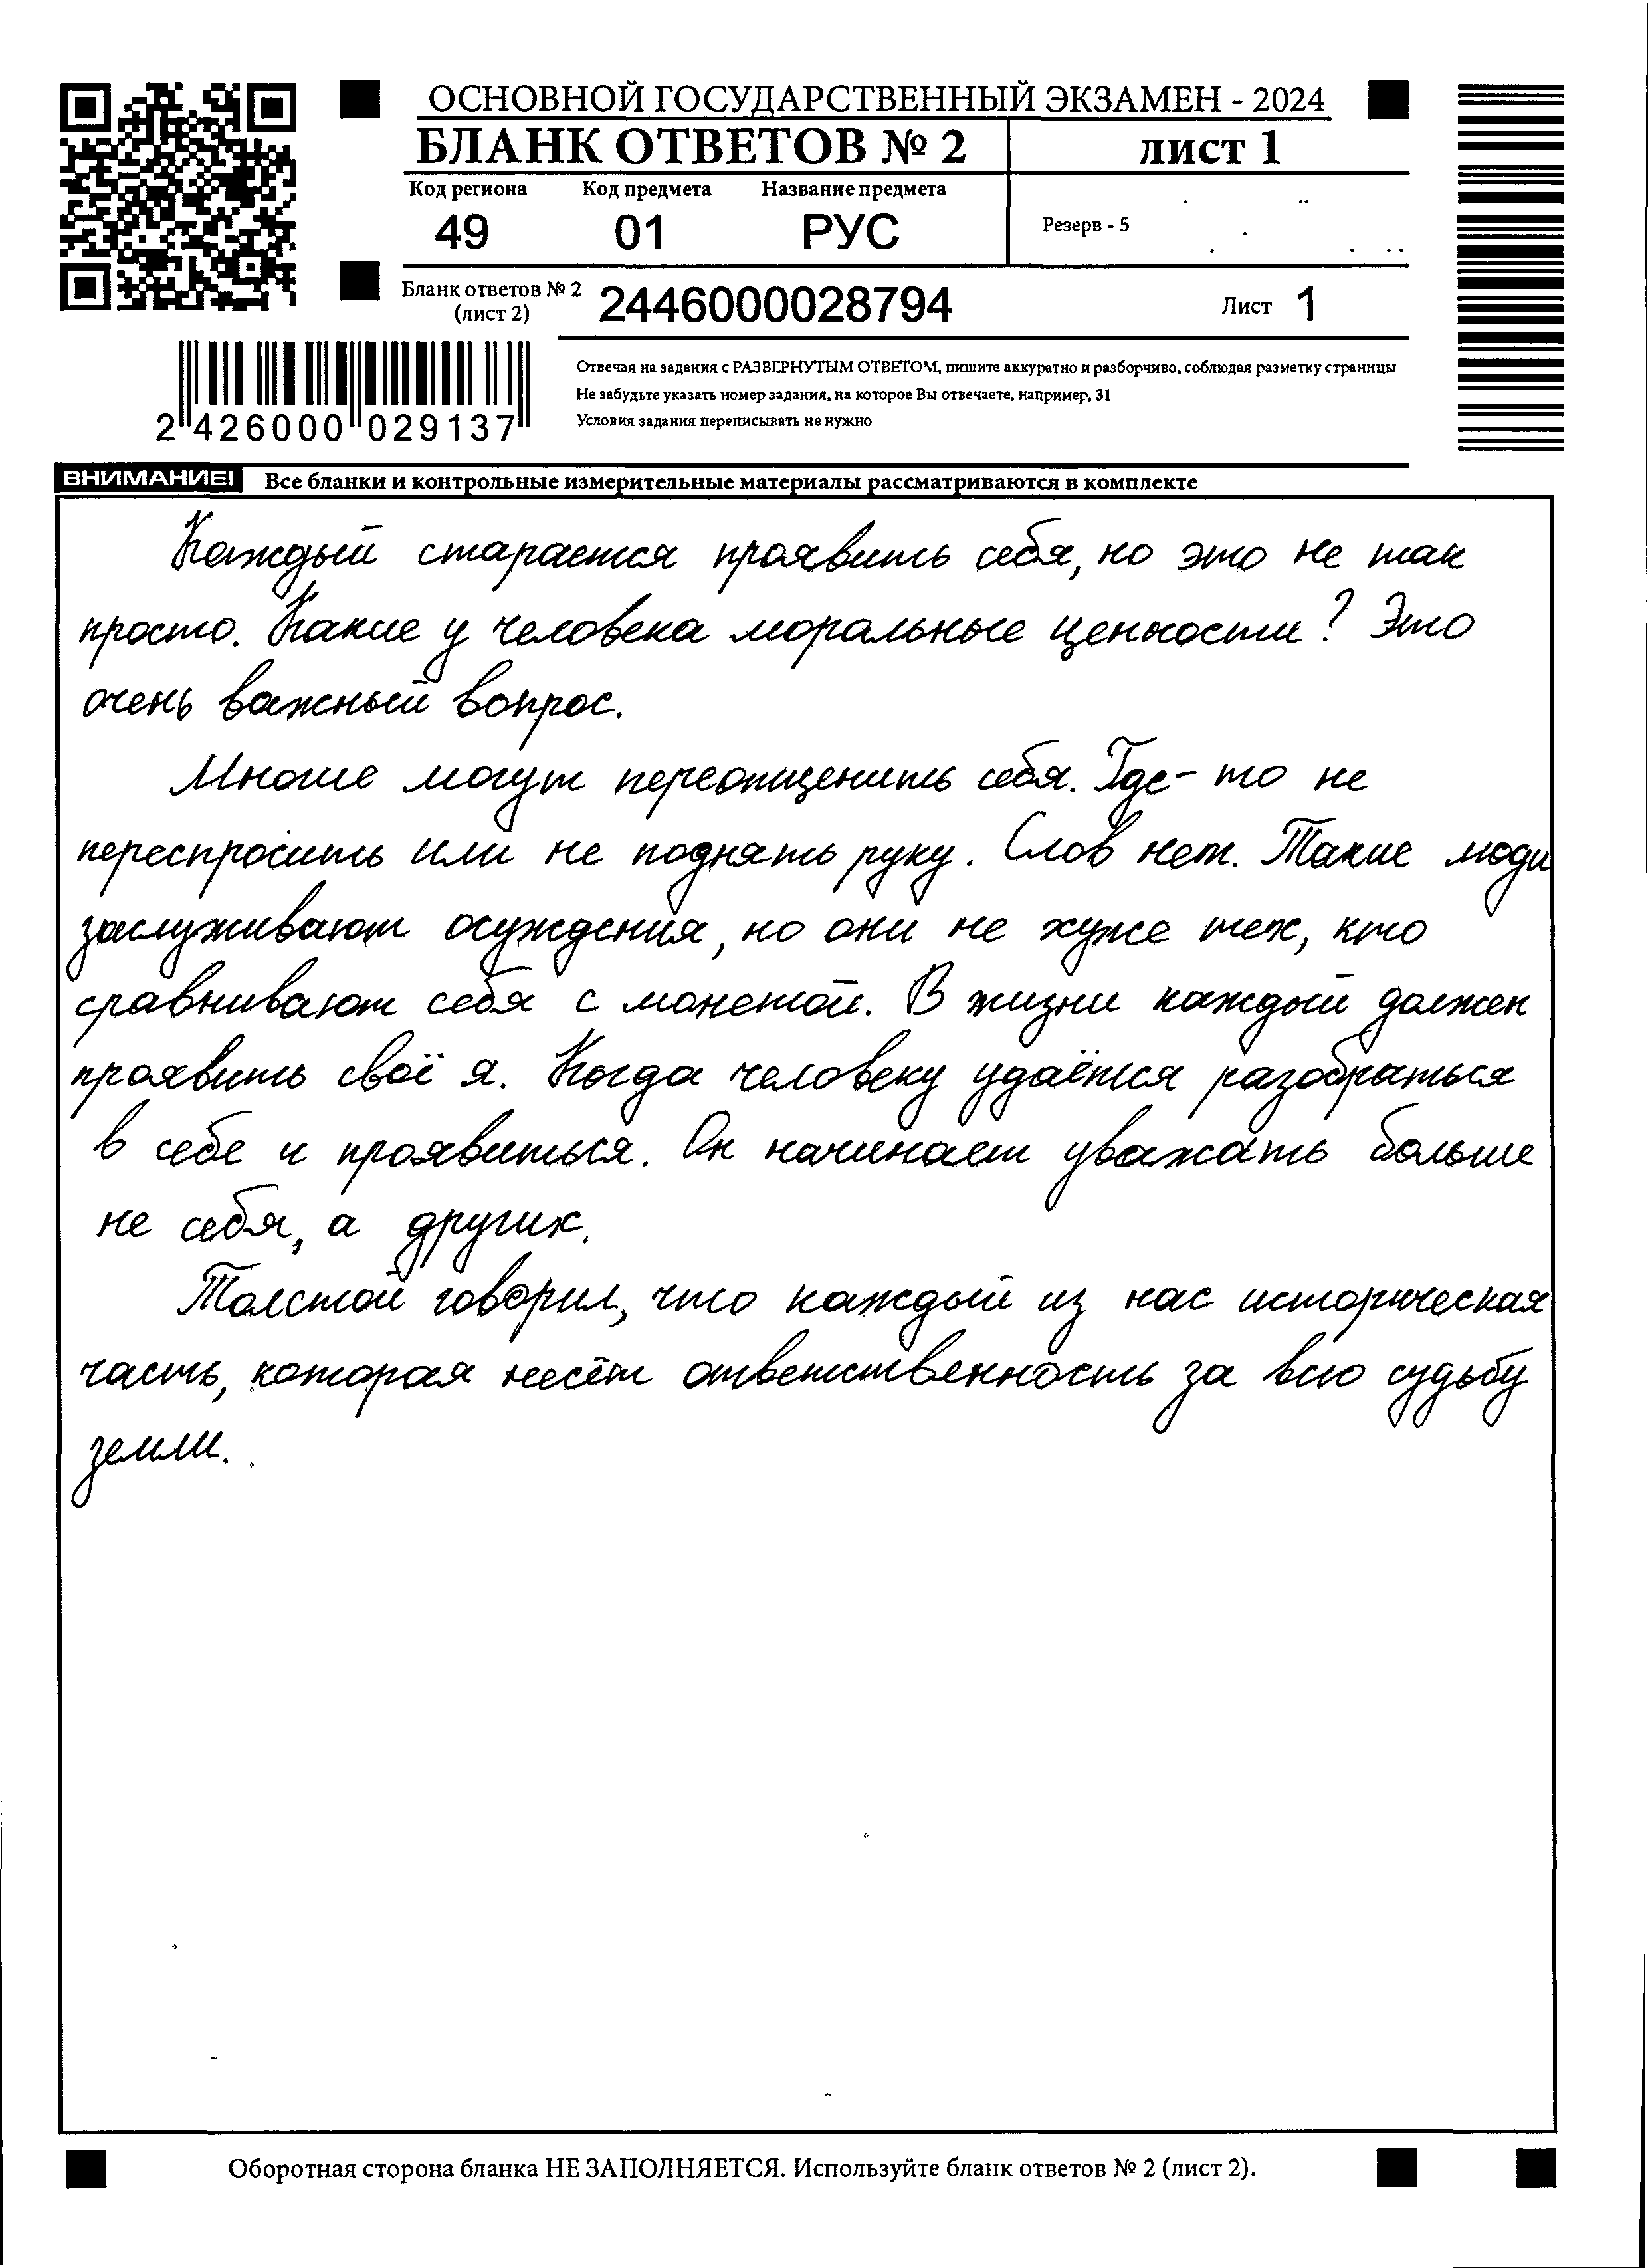 ОСНОВНОЙ ГОСУДАРСТВЕННЫЙ ЭКЗАМЕН - 2024
БЛАНК ОТВЕТОВ № 2
ЛИСТ 1
Код региона Код предмета Название предмета
49 01 РУС
Резерв - 5
Бланк ответов № 2 (лист 2) 2446000028794
Лист 1
2 426000 029137
Отвечая на задания с РАЗВЕРНУТЫМ ОТВЕТОМ, пишите аккуратно и разборчиво, соблюдая разметку страницы
Не забудьте указать номер задания, на которое Вы отвечаете, например, 31
Условия задания переписывать не нужно
ВНИМАНИЕ! Все бланки и контрольные измерительные материалы рассматриваются в комплекте
Каждый старается проявить себя, но это не так
просто. Какие у человека моральные ценности? Это
очень важный вопрос.
Многие могут переотценить себя. Где-то не
переспросить или не поднять руку. Слов нет. Такие люди
заслуживают осуждения, но они не хуже тех, кто
сравнивают себя с монетой. В жизни каждый должен
проявить своё я. Когда человеку удаётся разобраться
в себе и проявиться. Он начинает уважать больше
не себя, а других.
Толстой говорил, что каждый из нас историческая
часть, которая несёт ответственность за всю судьбу
земли.
Оборотная сторона бланка НЕ ЗАПОЛНЯЕТСЯ. Используйте бланк ответов № 2 (лист 2).